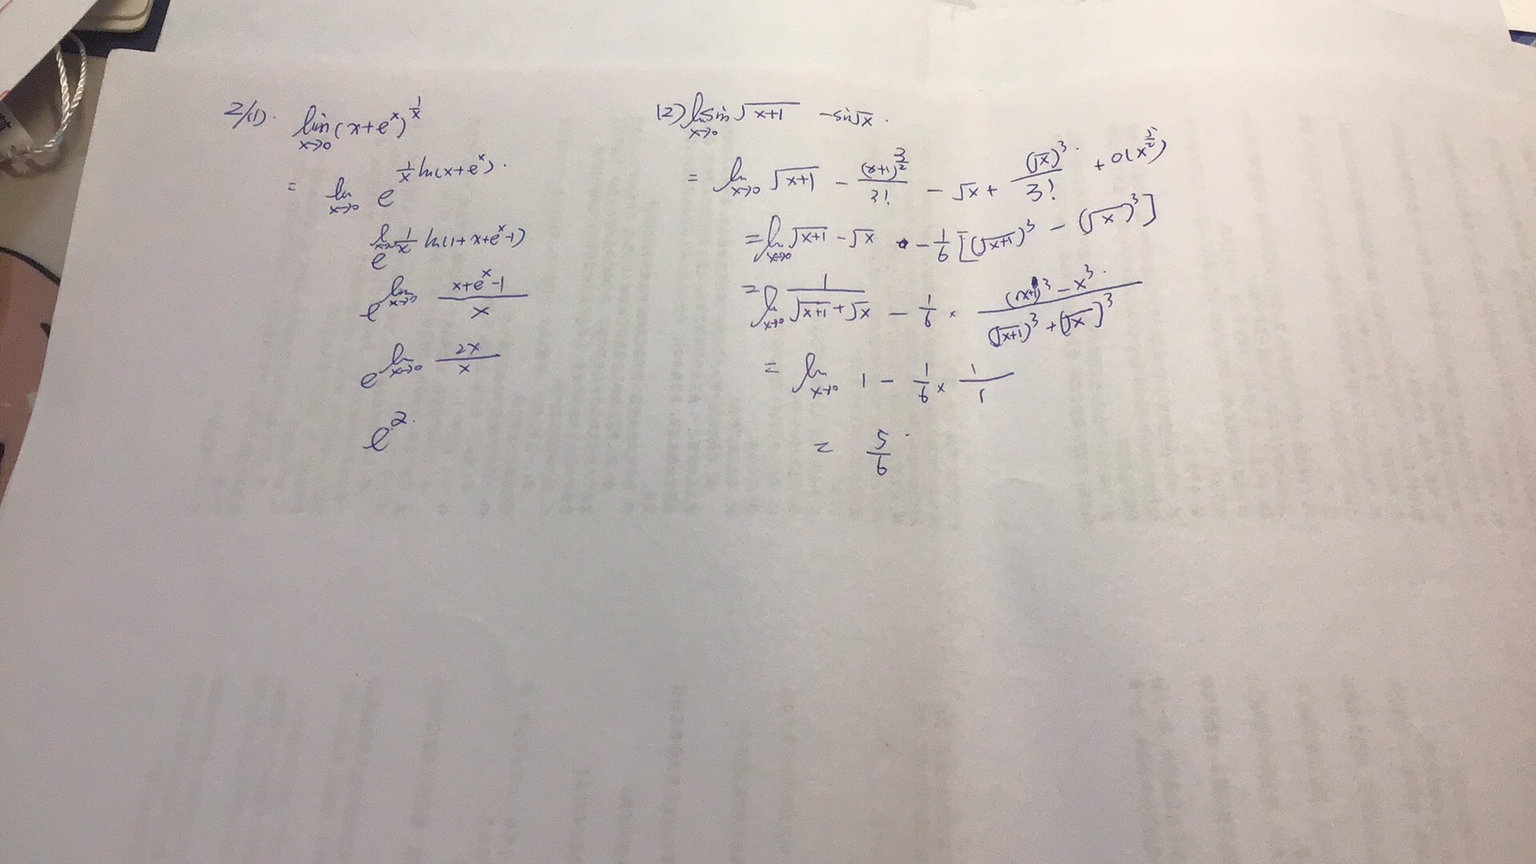 2/(1). lim_{x→0} (x+e^x)^{1/x}
= lim_{x→0} e^{1/x ln(x+e^x)}.
e^{lim_{x→0} 1/x ln(1+x+e^x-1)}
e^{lim_{x→0} (x+e^x-1)/x}
e^{lim_{x→0} 2x/x}
e^2.
(2) lim_{x→0} sin√(x+1) - sin√x.
= lim_{x→0} √(x+1) - (x+1)^{3/2}/3! - √x + (√x)^3/3! + o(x^{5/2})
= lim_{x→0} √(x+1) - √x - 1/6 [(√(x+1))^3 - (√x)^3]
= lim_{x→0} 1/(√(x+1)+√x) - 1/6 × ((x+1)^3 - x^3)/((√(x+1))^3 + (√x)^3)
= lim_{x→0} 1 - 1/6 × 1/1
= 5/6